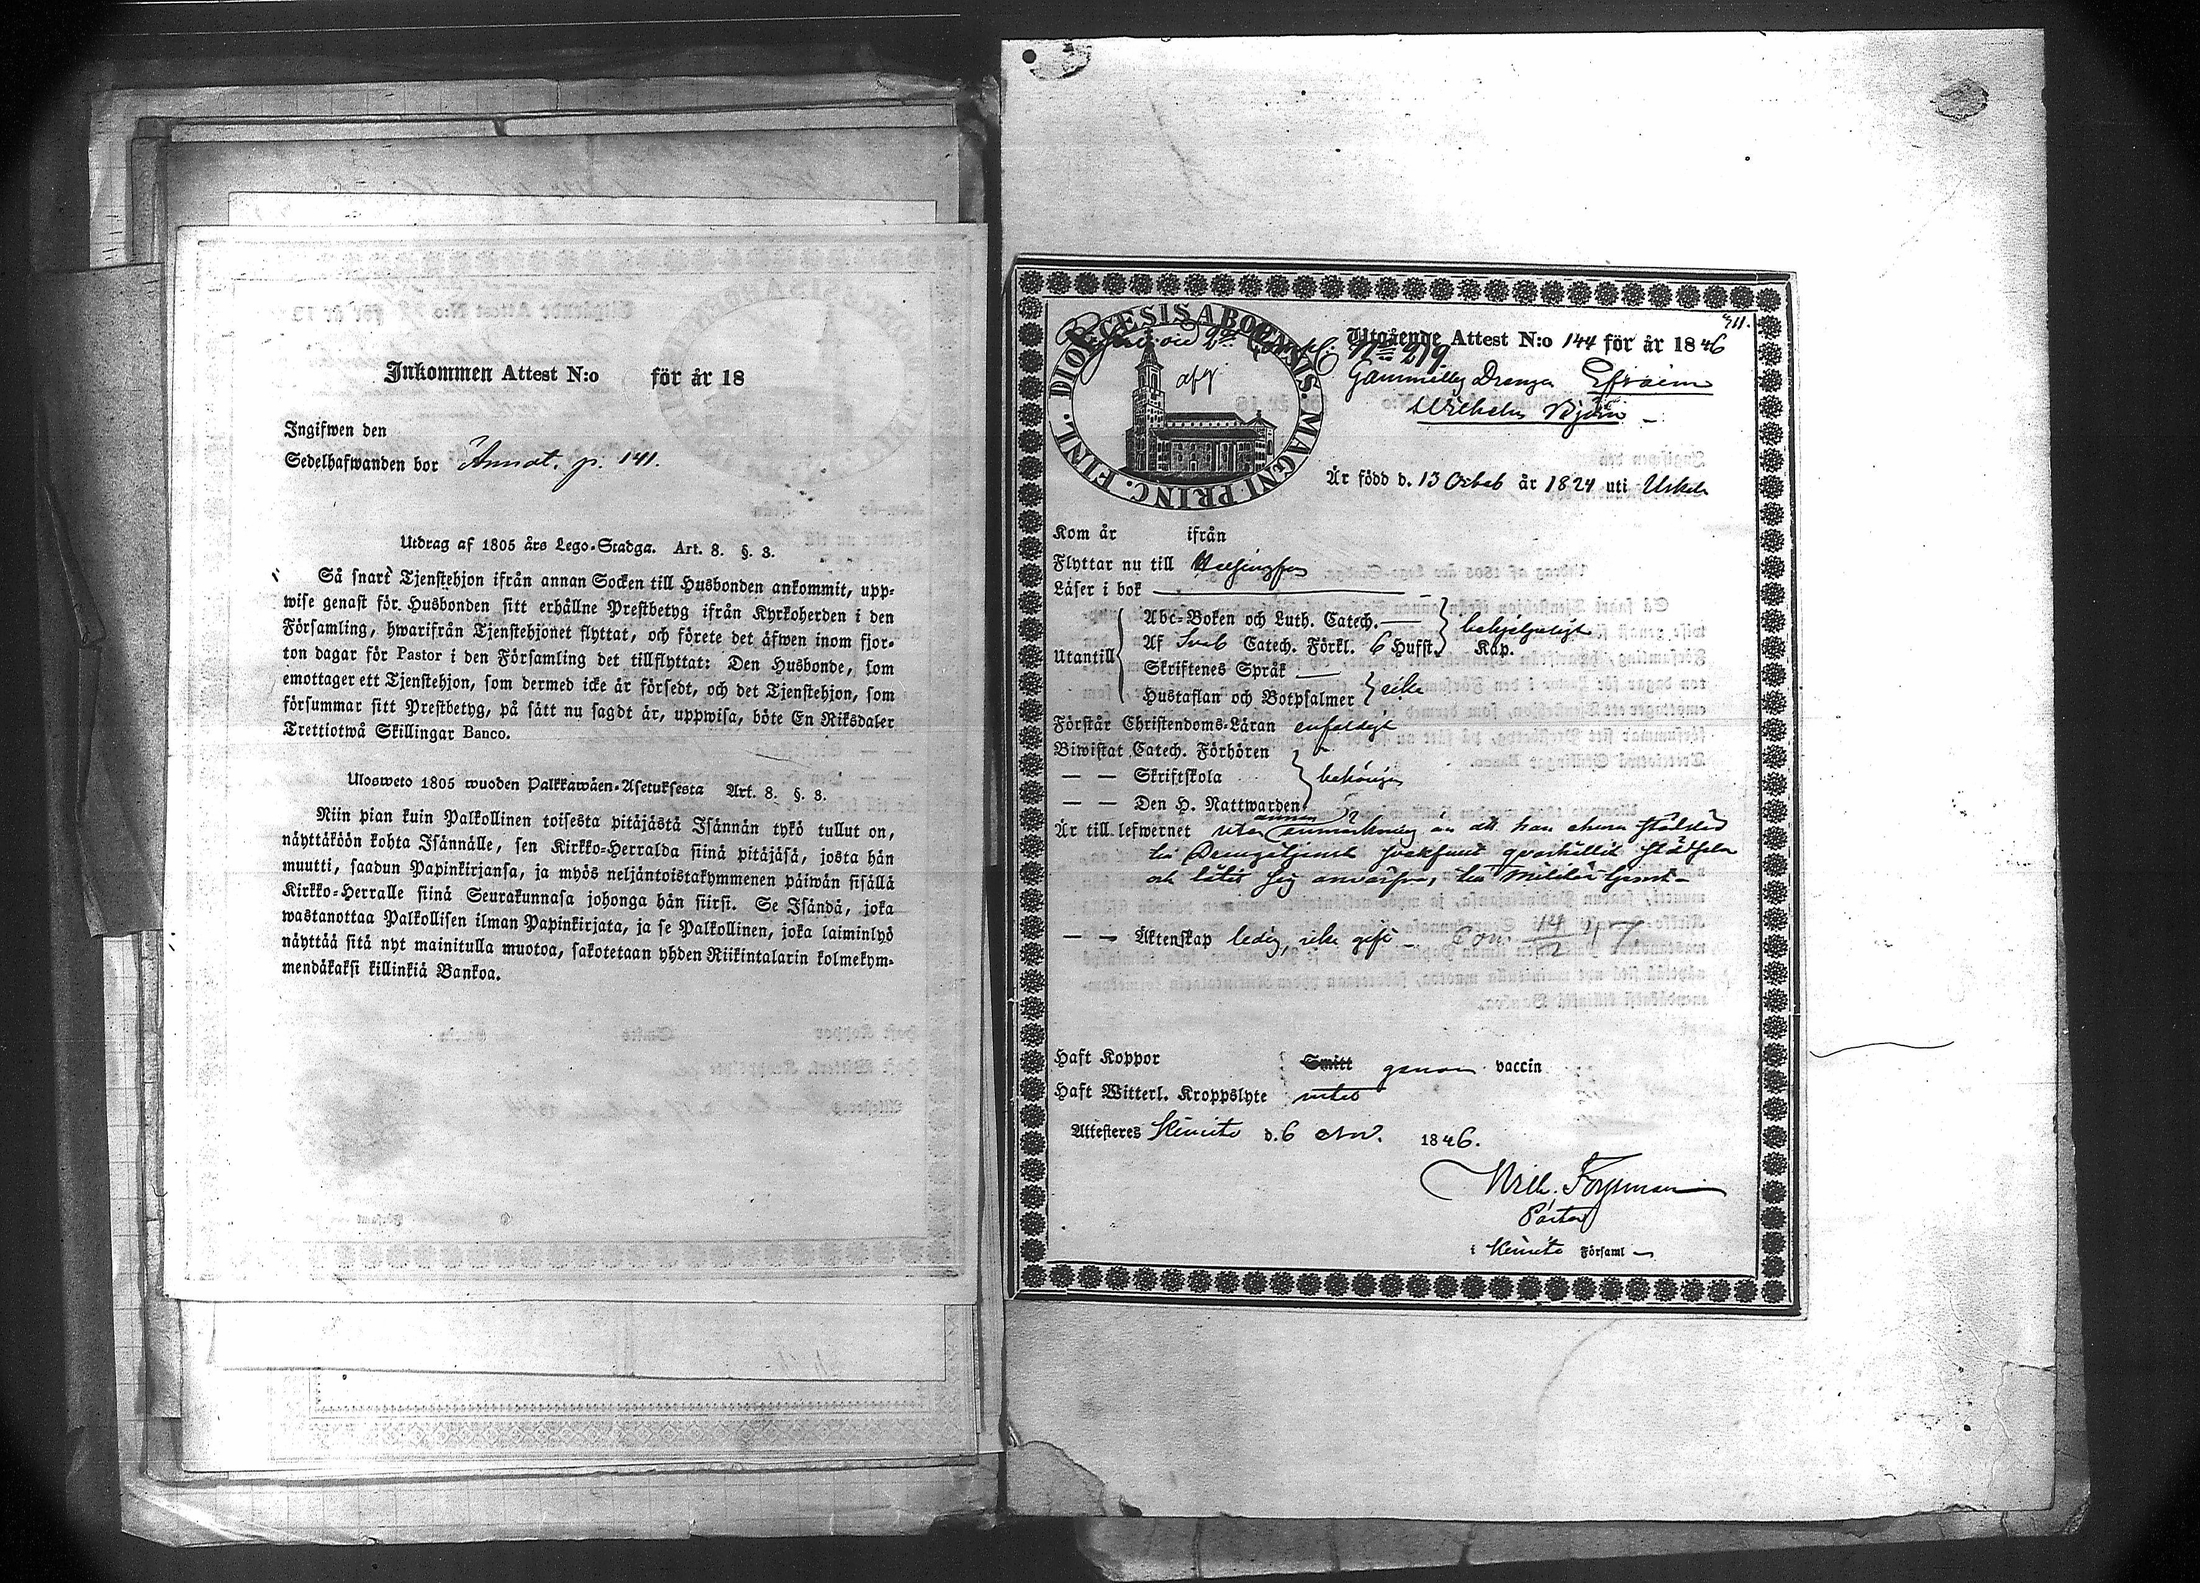 Inkommen Attest N:o för år 18
Ingifwen den
Sedelhafwanden bor Annot. p. 141.
Utdrag af 1805 års Lego-Stadga. Art. 8. §. 3.
Så snart Tjenstehjon ifrån annan Socken till Husbonden ankommit, upp-
wise genast för Husbonden sitt erhållne Prestbetyg ifrån Kyrkoherden i den
Församling, hwarifrån Tjenstehjonet flyttat, och förete det äfwen inom fjor-
ton dagar för Pastor i den Församling det tillflyttat: Den Husbonde, som
emottager ett Tjenstehjon, som dermed icke är försedt, och det Tjenstehjon, som
försummar sitt Prestbetyg, på sätt nu sagdt är, uppwisa, böte En Riksdaler
Trettiotwå Skillingar Banco.
Ulosweto 1805 wuoden Palkkawäen-Asetuksesta Art. 8. §. 3.
Niin pian kuin Palkollinen toisesta pitäjästä Isännän tykö tullut on,
näyttäköön kohta Isännälle, sen Kirkko-Herralda siinä pitäjäsä, josta hän
muutti, saadun Papinkirjansa, ja myös neljäntoistakymmenen päiwän sisällä
Kirkko-Herralle siinä Seurakunnasa johonga hän siirsi. Se Isändä, joka
wastanottaa Palkollisen ilman Papinkirjata, ja se Palkollinen, joka laiminlyö
näyttää sitä nyt mainitulla muotoa, sakotetaan yhden Riikintalarin kolmekym-
mendäkaksi killinkiä Bankoa.
411.
DIOECESIS ABOENSIS. MAGNI PRINC. FINL.
Utgående Attest N:o 144 för år 1846
No 219
Drängen Efraim
Wilhelm Björn
Är född d. 13 Octob år 1824 uti Uskela
Kom år ifrån
Flyttar nu till Helsingfors
Läser i bok
Utantill
Abc-Boken och Luth. Catech.
Af Sveb Catech. Förkl. 6 Hufst. Kap. behjelpeligt
Skriftenes Språk
Hustaflan och Botpsalmer icke
Förstår Christendoms-Läran enfaldigt
Biwistat Catech. Förhören
— — Skriftskola behörigen
— — Den H. Nattwarden
Är till lefwernet utan annan anmärkning än att han
och låtit sig till Militär tjenst
— — Äktenskap ledig, icke gift
Haft Koppor Smitt genom vaccin
Haft Witterl. Kroppslyte intet
Attesteres Kimito d. 6 Nov. 1846.
Wilh. Forssman
Pastor
i Kimito Församl